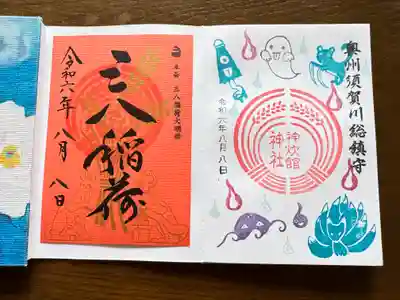 奥州須賀川総鎮守
神炊館
神社
令和六年八月八日
三八稲荷
令和六年 八月 八日